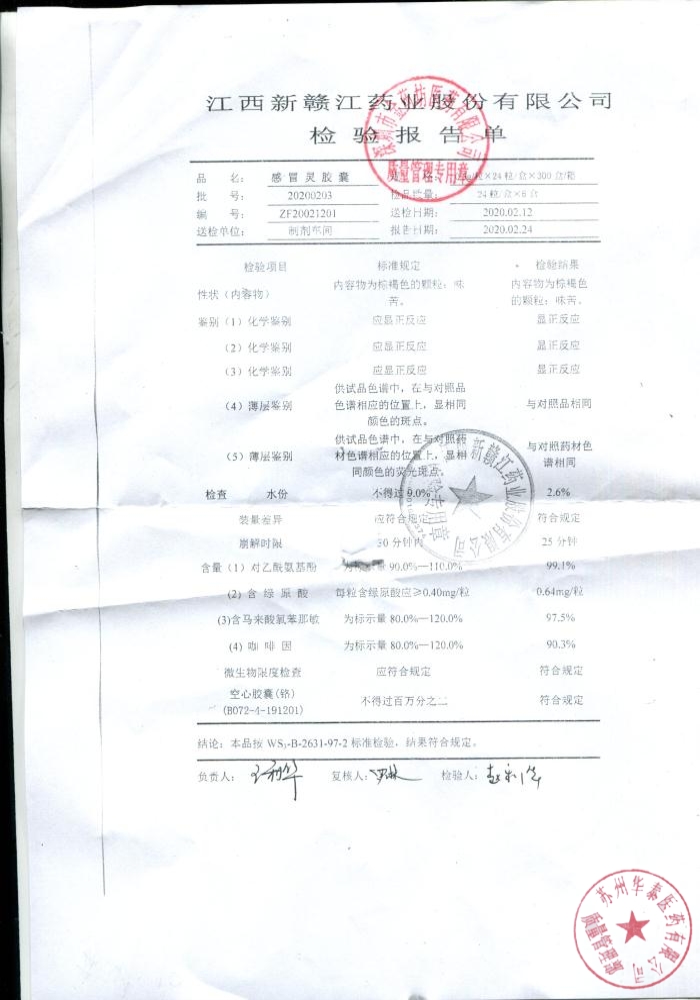 江西新赣江药业股份有限公司
检验报告单
品 名: 感冒灵胶囊 粒×24粒/盒×300盒/箱
批 号: 20200203 检品数量: 24粒/盒×6盒
编 号: ZF20021201 送检日期: 2020.02.12
送检单位: 制剂车间 报告日期: 2020.02.24
检验项目 标准规定 检验结果
性状(内容物) 内容物为棕褐色的颗粒;味苦。 内容物为棕褐色的颗粒;味苦。
鉴别(1)化学鉴别 应显正反应 显正反应
(2)化学鉴别 应显正反应 显正反应
(3)化学鉴别 应显正反应 显正反应
(4)薄层鉴别 供试品色谱中,在与对照品色谱相应的位置上,显相同颜色的斑点。 与对照品相同
(5)薄层鉴别 供试品色谱中,在与对照药材色谱相应的位置上,显相同颜色的荧光斑点。 与对照药材色谱相同
检查 水份 不得过9.0% 2.6%
装量差异 应符合规定 符合规定
崩解时限 30分钟内 25分钟
含量(1)对乙酰氨基酚 90.0%—110.0% 99.1%
(2)含绿原酸 每粒含绿原酸应≥0.40mg/粒 0.64mg/粒
(3)含马来酸氯苯那敏 为标示量80.0%—120.0% 97.5%
(4)咖啡因 为标示量80.0%—120.0% 90.3%
微生物限度检查 应符合规定 符合规定
空心胶囊(铬) 不得过百万分之二 符合规定
(B072-4-191201)
结论:本品按WS₃-B-2631-97-2标准检验,结果符合规定。
负责人: 复核人: 检验人:
深圳市 医药有限公司
质量管理专用章
新赣江药业股份有限公司
专用章
苏州华泰医药有限公司
质量管理专用章